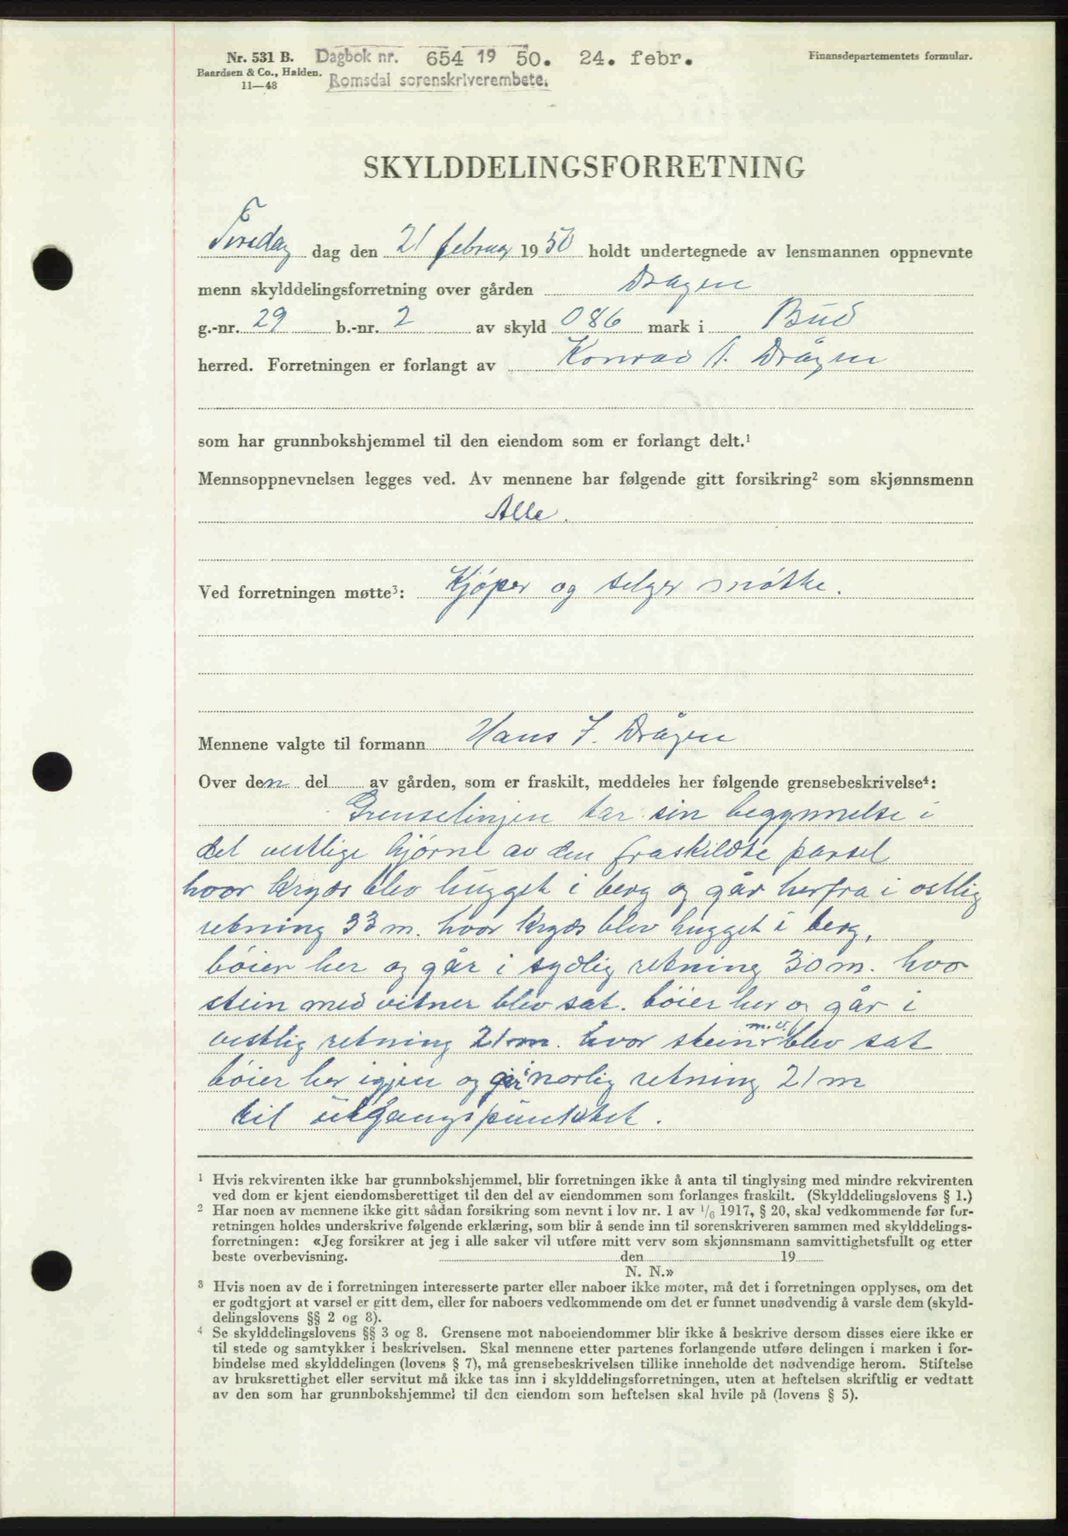 Nr. 531 B. Dagbok nr. 654 19 50. 24. febr.
Finansdepartementets formular.
Baardsen & Co., Halden.
11—48
Romsdal sorenskriverembete.
SKYLDDELINGSFORRETNING
Tirsdag dag den 21 februar 1950 holdt undertegnede av lensmannen oppnevnte
menn skylddelingsforretning over gården Drågen
g.-nr. 29 b.-nr. 2 av skyld 0 86 mark i Bud
herred. Forretningen er forlangt av Konrad A. Drågen
som har grunnbokshjemmel til den eiendom som er forlangt delt.¹
Mennsoppnevnelsen legges ved. Av mennene har følgende gitt forsikring² som skjønnsmenn
Alle.
Ved forretningen møtte³: Kjøper og selger møtte.
Mennene valgte til formann Hans J. Drågen
Over den del av gården, som er fraskilt, meddeles her følgende grensebeskrivelse⁴:
Grenselinjen tar sin begynnelse i
det vestlige hjørne av den fraskildte parsel
hvor kryds blev hugget i berg og går herfra i ostlig
retning 33 m. hvor kryds blev hugget i berg,
bøier her og går i sydlig retning 30 m. hvor
stein med vitner blev sat. bøier her og går i
vestlig retning 21 m. hvor stein m.v. blev sat
bøier her igjen og går i norlig retning 21 m
til utgangspunktet.
¹ Hvis rekvirenten ikke har grunnbokshjemmel, blir forretningen ikke å anta til tinglysing med mindre rekvirenten
ved dom er kjent eiendomsberettiget til den del av eiendommen som forlanges fraskilt. (Skylddelingslovens § 1.)
² Har noen av mennene ikke gitt sådan forsikring som nevnt i lov nr. 1 av 1/6 1917, § 20, skal vedkommende før for-
retningen holdes underskrive følgende erklæring, som blir å sende inn til sorenskriveren sammen med skylddelings-
forretningen: «Jeg forsikrer at jeg i alle saker vil utføre mitt verv som skjønnsmann samvittighetsfullt og etter
beste overbevisning. den 19
N. N.»
³ Hvis noen av de i forretningen interesserte parter eller naboer ikke møter, må det i forretningen opplyses, om det
er godtgjort at varsel er gitt dem, eller for naboers vedkommende om det er funnet unødvendig å varsle dem (skyld-
delingslovens §§ 2 og 8).
⁴ Se skylddelingslovens §§ 3 og 8. Grensene mot naboeiendommer blir ikke å beskrive dersom disses eiere ikke er
til stede og samtykker i beskrivelsen. Skal mennene etter partenes forlangende utføre delingen i marken i for-
bindelse med skylddelingen (lovens § 7), må grensebeskrivelsen tillike inneholde det nødvendige herom. Stiftelse
av bruksrettighet eller servitut må ikke tas inn i skylddelingsforretningen, uten at heftelsen skriftlig er vedtatt
av den som har grunnbokshjemmel til den eiendom som heftelsen skal hvile på (lovens § 5).